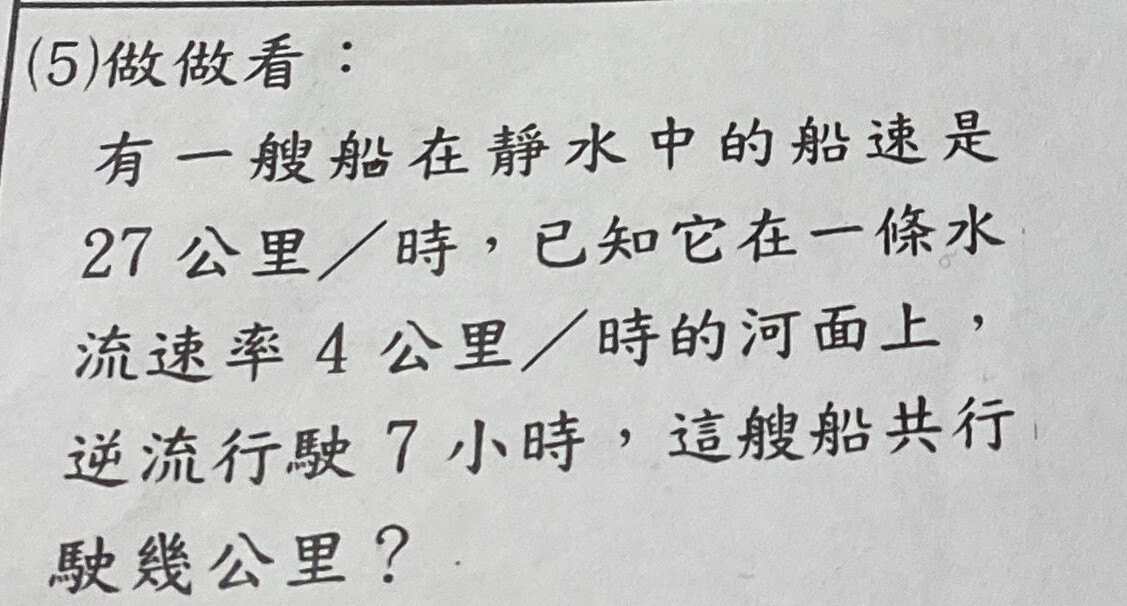 (5)做做看：
有一艘船在靜水中的船速是
27公里／時，已知它在一條水
流速率4公里／時的河面上，
逆流行駛7小時，這艘船共行
駛幾公里？